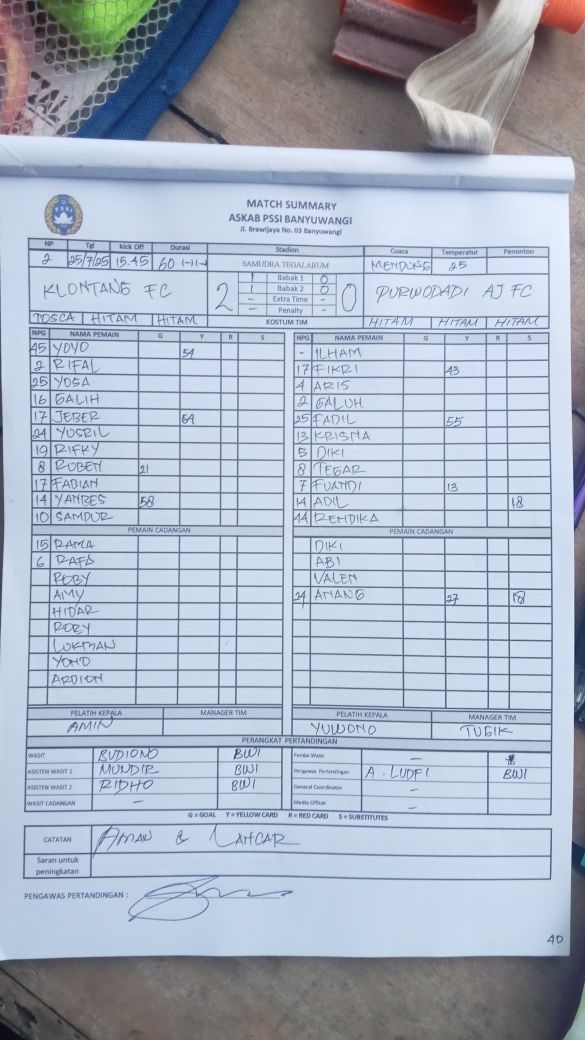 MATCH SUMMARY
ASKAB PSSI BANYUWANGI
Jl. Brawijaya No. 03 Banyuwangi
NP Tgl kick Off Durasi Stadion Cuaca Temperatur Penonton
2 25/7/25 15.45 60 SAMUDRA TEGALARUM MENDUNG 25
KLONTANG FC 2 0 PURWODADI AJ FC
1 Babak 1 0
1 Babak 2 0
- Extra Time -
- Penalty -
TOSCA HITAM HITAM KOSTUM TIM HITAM HITAM HITAM
NPG NAMA PEMAIN G Y R S NPG NAMA PEMAIN G Y R S
45 YOYO 54 - ILHAM
2 RIFAL 17 FIKRI 43
25 YOGA 4 ARIS
16 GALIH 2 GALUH
17 JEBER 54 25 FADIL 55
24 YUSRIL 13 KRISMA
19 RIFKY 5 DIKI
8 RUBEN 21 8 TEGAR
17 FABIAN 7 FUANDI 13
14 YANBES 58 14 ADIL 18
10 SAMPUR 44 RENDIKA
PEMAIN CADANGAN PEMAIN CADANGAN
15 RAMA DIKI
6 RAFA ABI
ROBY VALEN
AMY 24 ANANG 27 18
HIDAR
ROBY
LUKMAN
YONO
ARDION
PELATIH KEPALA MANAGER TIM PELATIH KEPALA MANAGER TIM
AMIN YUWONO TUGIK
PERANGKAT PERTANDINGAN
WASIT BUDIONO BWI Penilai Wasit -
ASISTEN WASIT 1 MUNDIR BWI Pengawas Pertandingan A. LUDFI BWI
ASISTEN WASIT 2 RIDHO BWI General Coordinator -
WASIT CADANGAN - Media Officer -
G = GOAL Y = YELLOW CARD R = RED CARD S = SUBSTITUTES
CATATAN AMAN & LANCAR
Saran untuk
peningkatan
PENGAWAS PERTANDINGAN :
40